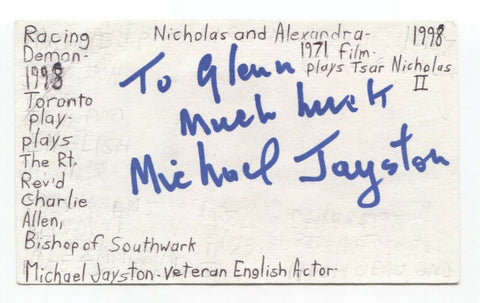 Racing
Demon-
1998
Toronto
play-
plays
The Rt.
Rev'd
Charlie
Allen,
Bishop of Southwark
Michael Jayston-veteran English Actor-
Nicholas and Alexandra-
1971 film-
plays Tsar Nicholas
II
1998
To Glenn
Much luck
Michael Jayston